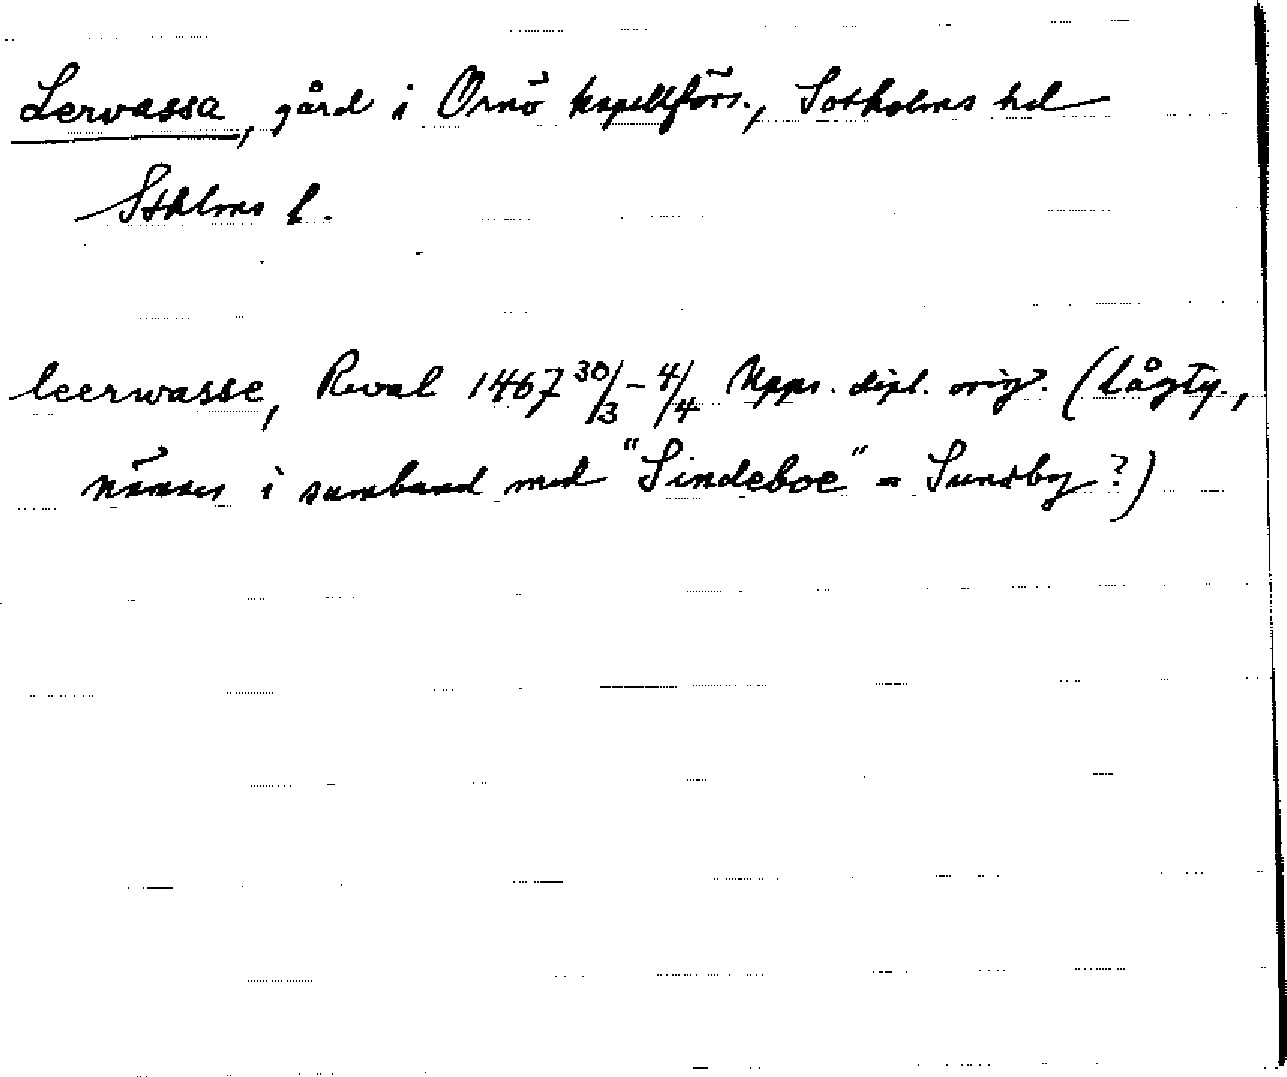 Lervassa, gård i Ornö kapellförs., Sotholms hd
Sthlms l.
leerwasse, Reval 1467 30/3 – 4/4 Upps. dipl. orig. (Lågty.,
nämnes i samband med "Sindeboe" = Sundby?)